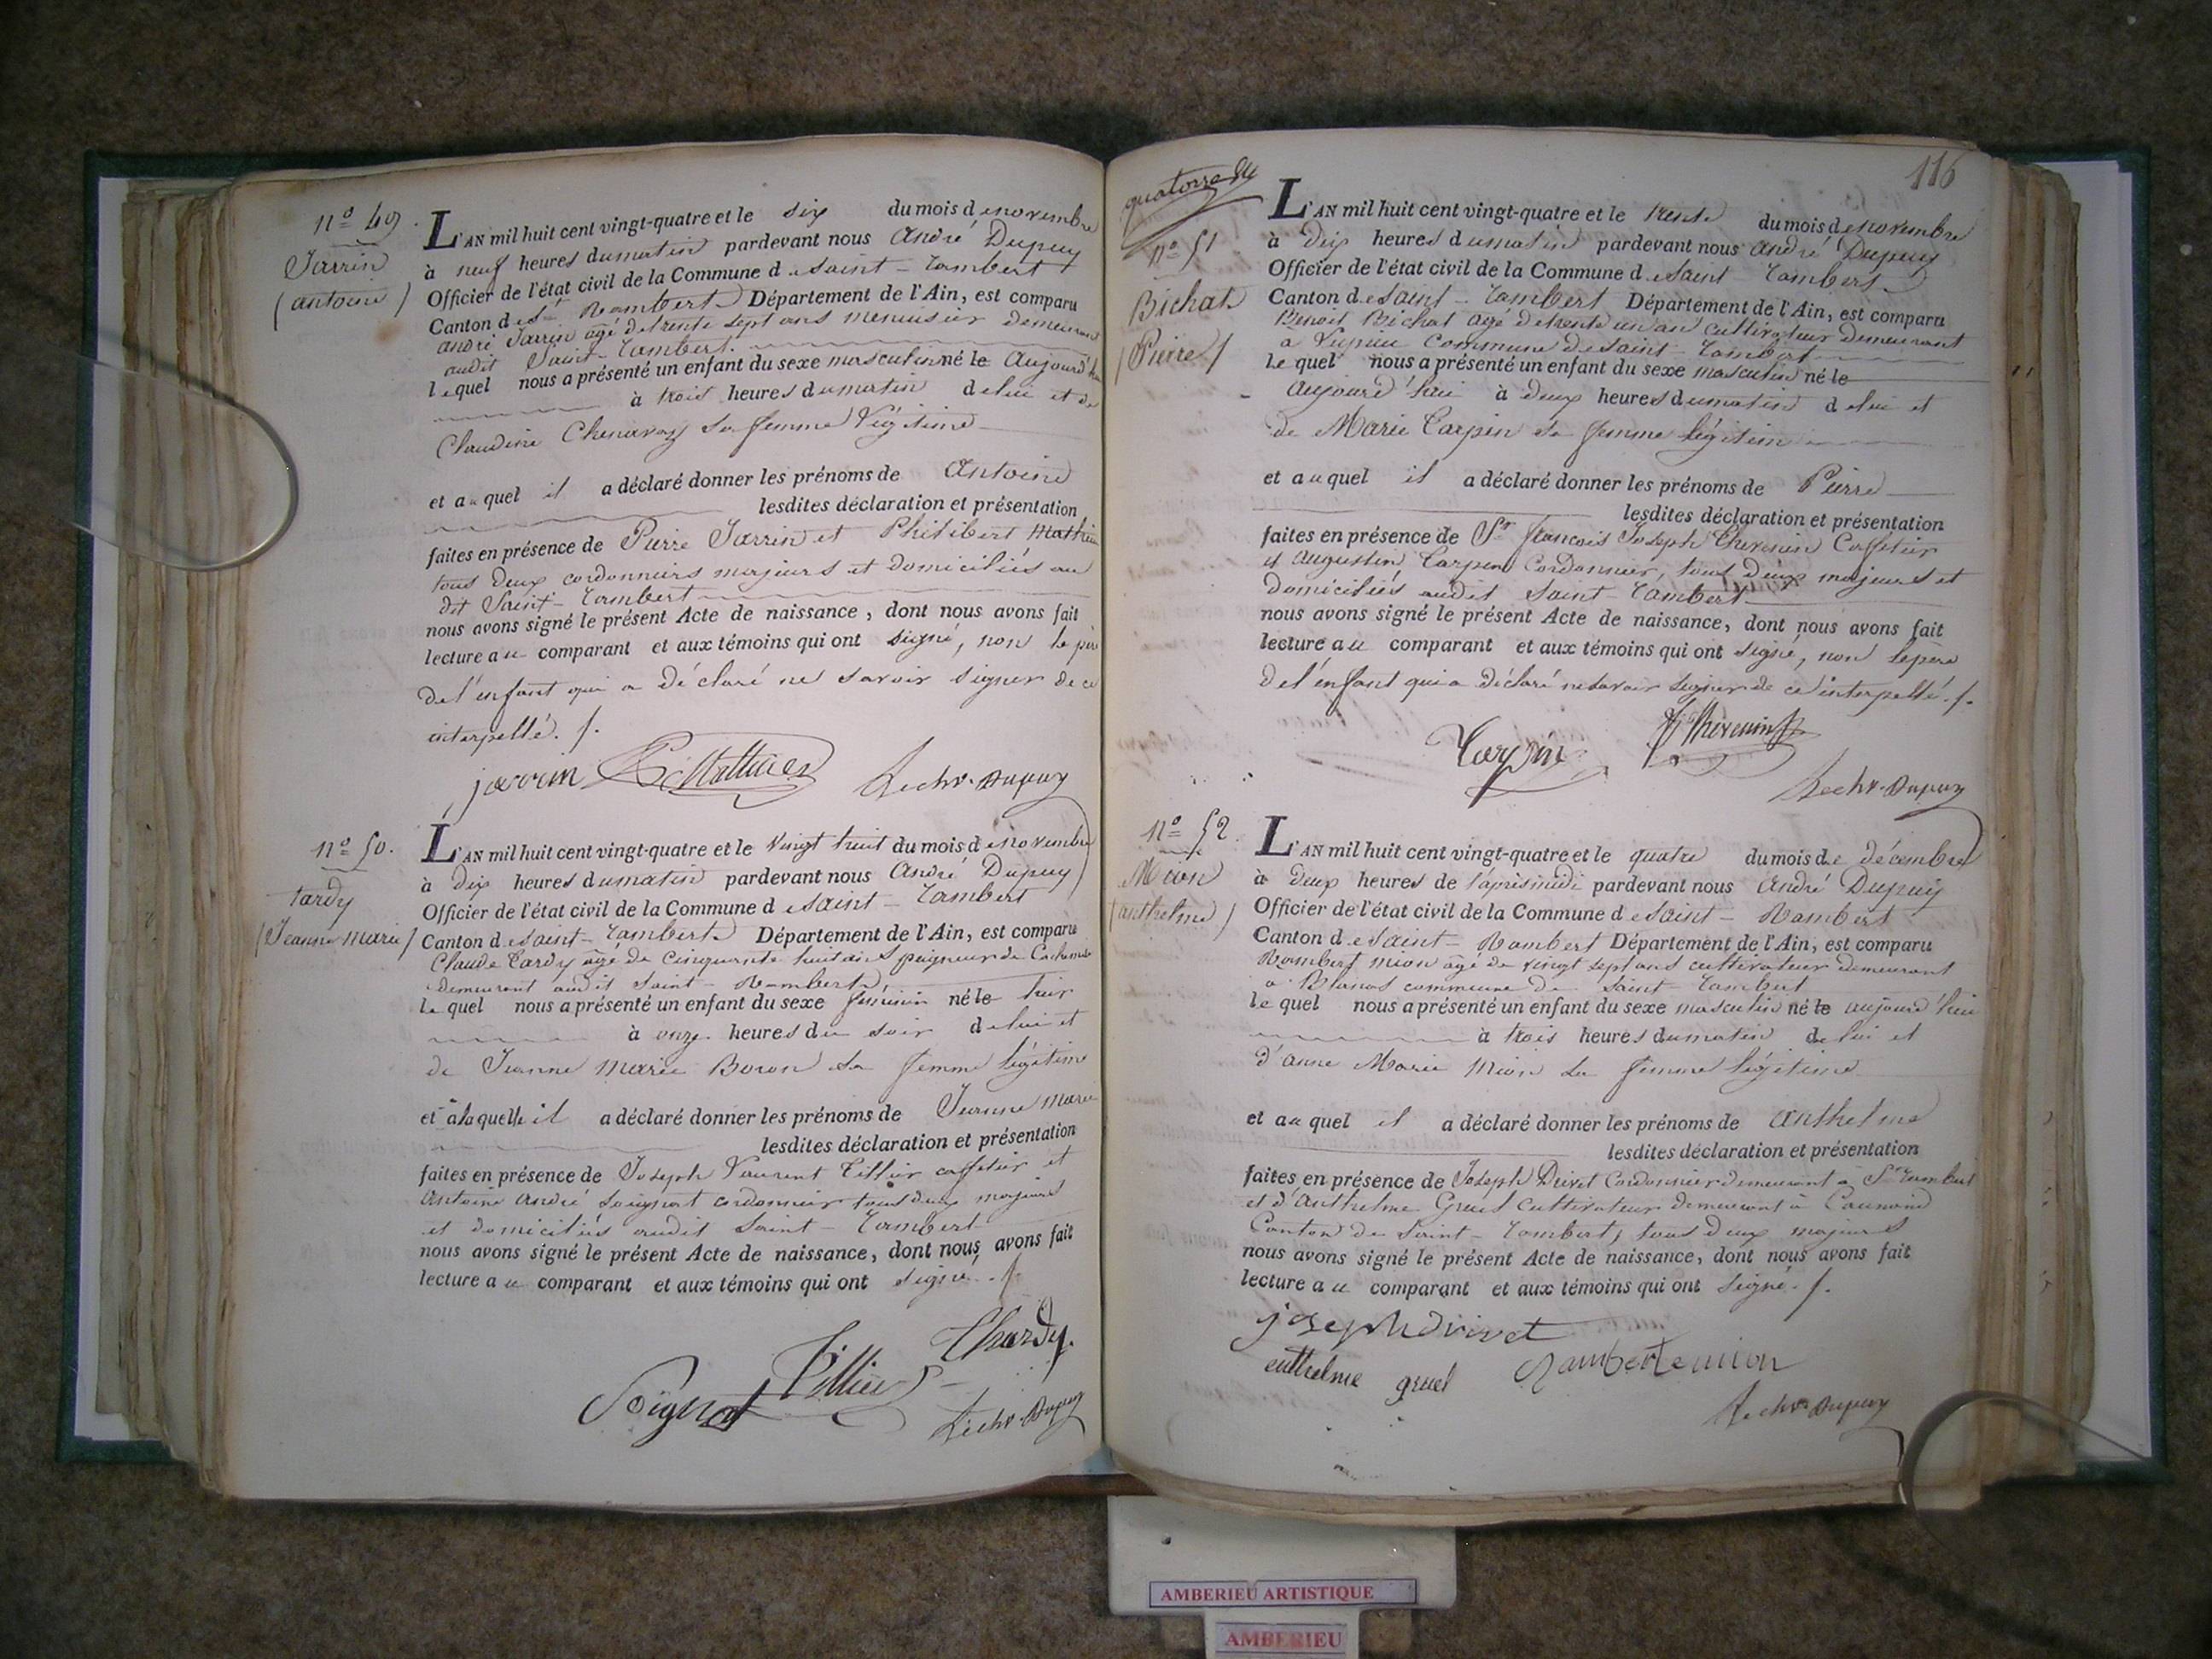 n° 49.
Jarrin
(antoine)
L'AN mil huit cent vingt-quatre et le six du mois de novembre
à neuf heures du matin pardevant nous André Dupuy
Officier de l'état civil de la Commune de Saint-rambert
Canton de St Rambert Département de l'Ain, est comparu
andré Jarrin agé de trente sept ans menuisier demeurant
audit Saint-rambert.
lequel nous a présenté un enfant du sexe masculin né le Aujourd'hui
à trois heures du matin de lui et de
Claudine Chenavaz sa femme légitime
et auquel il a déclaré donner les prénoms de Antoine
lesdites déclaration et présentation
faites en présence de Pierre Jarrin et Philibert Mathieu
tous deux cordonniers majeurs et domiciliés au
dit Saint-rambert
nous avons signé le présent Acte de naissance, dont nous avons fait
lecture au comparant et aux témoins qui ont signé, non le père
de l'enfant qui a déclaré ne savoir signer de ce
interpellé. /.
jarrin P. Mathieu Dupuy
n° 50.
tardy
(Jeanne Marie)
L'AN mil huit cent vingt-quatre et le vingt huit du mois de novembre
à dix heures du matin pardevant nous André Dupuy
Officier de l'état civil de la Commune de Saint-rambert
Canton de Saint-rambert Département de l'Ain, est comparu
Claude tardy agé de cinquante huit ans peigneur de
demeurant audit Saint-Rambert
Lequel nous a présenté un enfant du sexe féminin né le hier
à onze heures du soir de lui et
de Jeanne Marie Boron sa femme légitime
et à laquelle il a déclaré donner les prénoms de Jeanne Marie
lesdites déclaration et présentation
faites en présence de Joseph Laurent Tillier caffetier et
Antoine André Soignat cordonnier tous deux majeurs
et domiciliés audit Saint-rambert
nous avons signé le présent Acte de naissance, dont nous avons fait
lecture au comparant et aux témoins qui ont signé. /.
Soignat Tillier Dupuy
116
n° 51
Bichat
(Pierre)
L'AN mil huit cent vingt-quatre et le trente du mois de novembre
à dix heures du matin pardevant nous André Dupuy
Officier de l'état civil de la Commune de Saint-rambert
Canton de Saint-rambert Département de l'Ain, est comparu
Benoit Bichat agé de trente un an cultivateur demeurant
à commune de Saint-rambert
Lequel nous a présenté un enfant du sexe masculin né le
aujourd'hui à deux heures du matin de lui et
de Marie Carpin sa femme légitime
et auquel il a déclaré donner les prénoms de Pierre
lesdites déclaration et présentation
faites en présence de Sr françois Joseph Thevenin Caffetier
et Augustin Carpin Cordonnier, tous deux majeurs et
domiciliés audit Saint-rambert
nous avons signé le présent Acte de naissance, dont nous avons fait
lecture au comparant et aux témoins qui ont signé, non le père
de l'enfant qui a déclaré ne savoir signer de ce interpellé. /.
Carpin Thevenin
Dupuy
n° 52.
Mion
(anthelme)
L'AN mil huit cent vingt-quatre et le quatre du mois de décembre
à deux heures de l'après midi pardevant nous André Dupuy
Officier de l'état civil de la Commune de Saint-Rambert
Canton de Saint-Rambert Département de l'Ain, est comparu
Rambert mion agé de vingt sept ans cultivateur demeurant
à Blanas commune de Saint-rambert
Lequel nous a présenté un enfant du sexe masculin né le aujourd'hui
à trois heures du matin de lui et
d'anne Marie Mion sa femme légitime
et auquel il a déclaré donner les prénoms de anthelme
lesdites déclaration et présentation
faites en présence de Joseph Drivet Cordonnier demeurant à St rambert
et d'anthelme Gruel cultivateur demeurant à
Canton de Saint-rambert, tous deux majeurs
nous avons signé le présent Acte de naissance, dont nous avons fait
lecture au comparant et aux témoins qui ont signé. /.
joseph drivet
enthelme gruel Rambert mion
Dupuy
AMBERIEU ARTISTIQUE
AMBERIEU